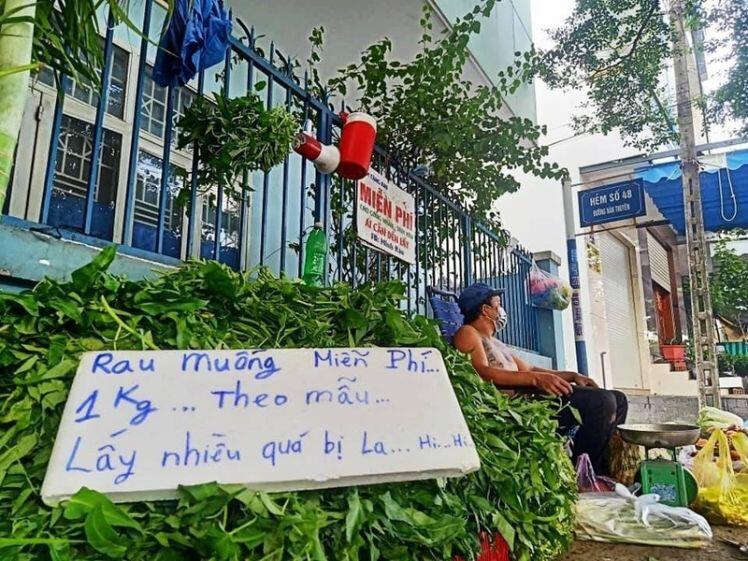 MIỄN PHÍ
AI CẦN ĐẾN LẤY
HẺM SỐ 48
ĐƯỜNG HÀN THUYÊN
Rau muống Miễn Phí...
1 Kg ... Theo mẫu...
Lấy nhiều quá bị La... Hi... Hi